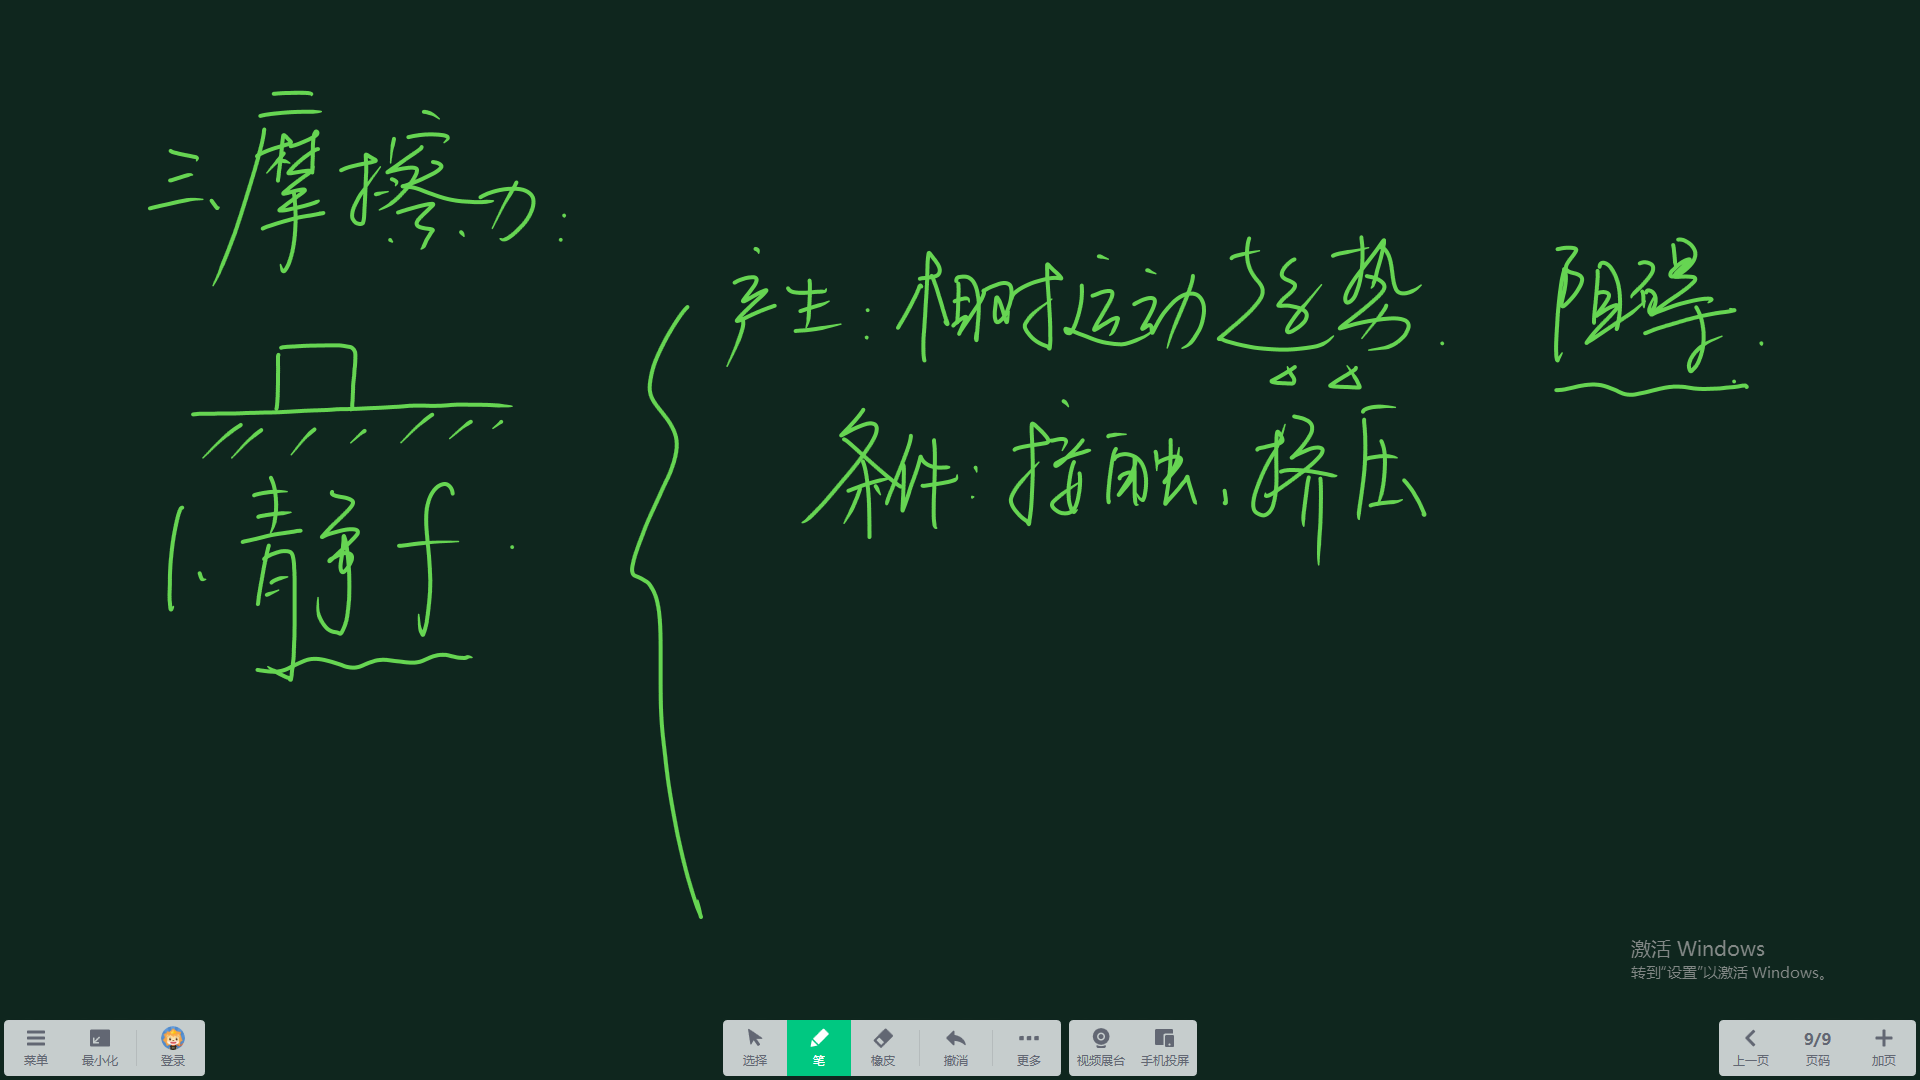 三、摩擦力：
产生：相对运动趋势. 阻碍.
条件：接触、挤压
1.静f.
激活 Windows
转到“设置”以激活 Windows。
菜单
最小化
登录
选择
笔
橡皮
撤消
更多
视频展台
手机投屏
上一页
9/9
页码
加页